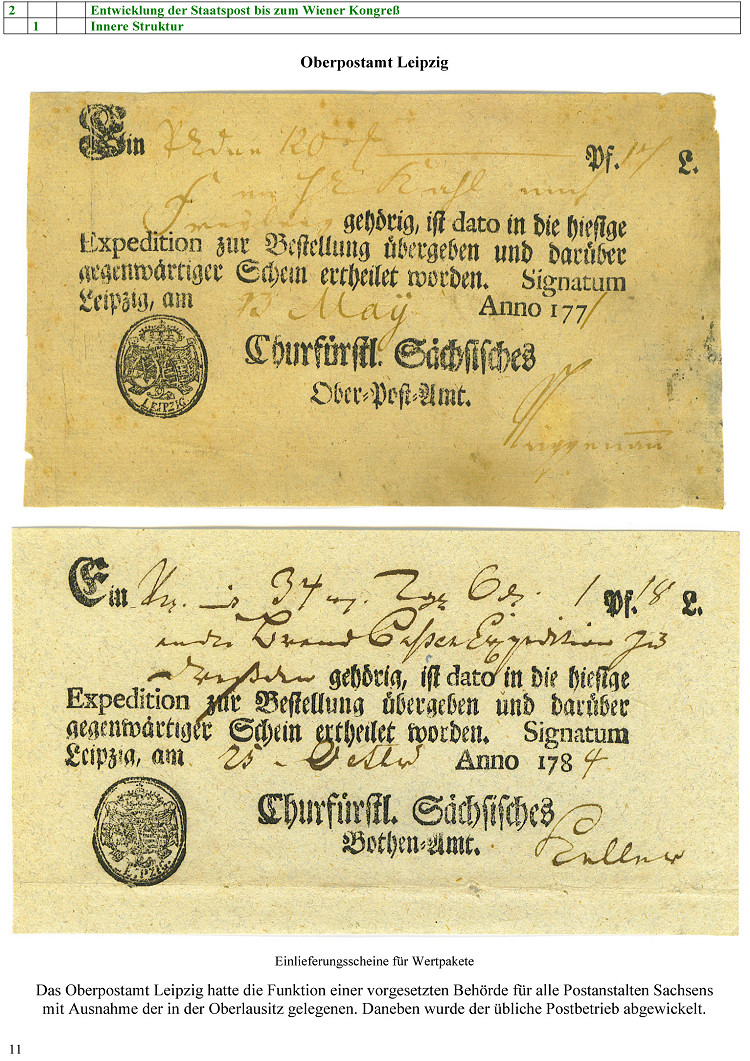 2 Entwicklung der Staatspost bis zum Wiener Kongreß
1 Innere Struktur
Oberpostamt Leipzig
Ein Pf. 17 L.
gehörig, ist dato in die hiesige
Expedition zur Bestellung übergeben und darüber
gegenwärtiger Schein ertheilet worden. Signatum
Leipzig, am 13 May Anno 1771
Churfürstl. Sächsisches
Ober-Post-Amt.
LEIPZIG
Ein 34 1 Pf. 18 L.
Brand Cassen Expedition zu
Dreßden gehörig, ist dato in die hiesige
Expedition zur Bestellung übergeben und darüber
gegenwärtiger Schein ertheilet worden. Signatum
Leipzig, am 25 Anno 1784
Churfürstl. Sächsisches
Bothen-Amt.
LEIPZIG
Einlieferungsscheine für Wertpakete
Das Oberpostamt Leipzig hatte die Funktion einer vorgesetzten Behörde für alle Postanstalten Sachsens
mit Ausnahme der in der Oberlausitz gelegenen. Daneben wurde der übliche Postbetrieb abgewickelt.
11